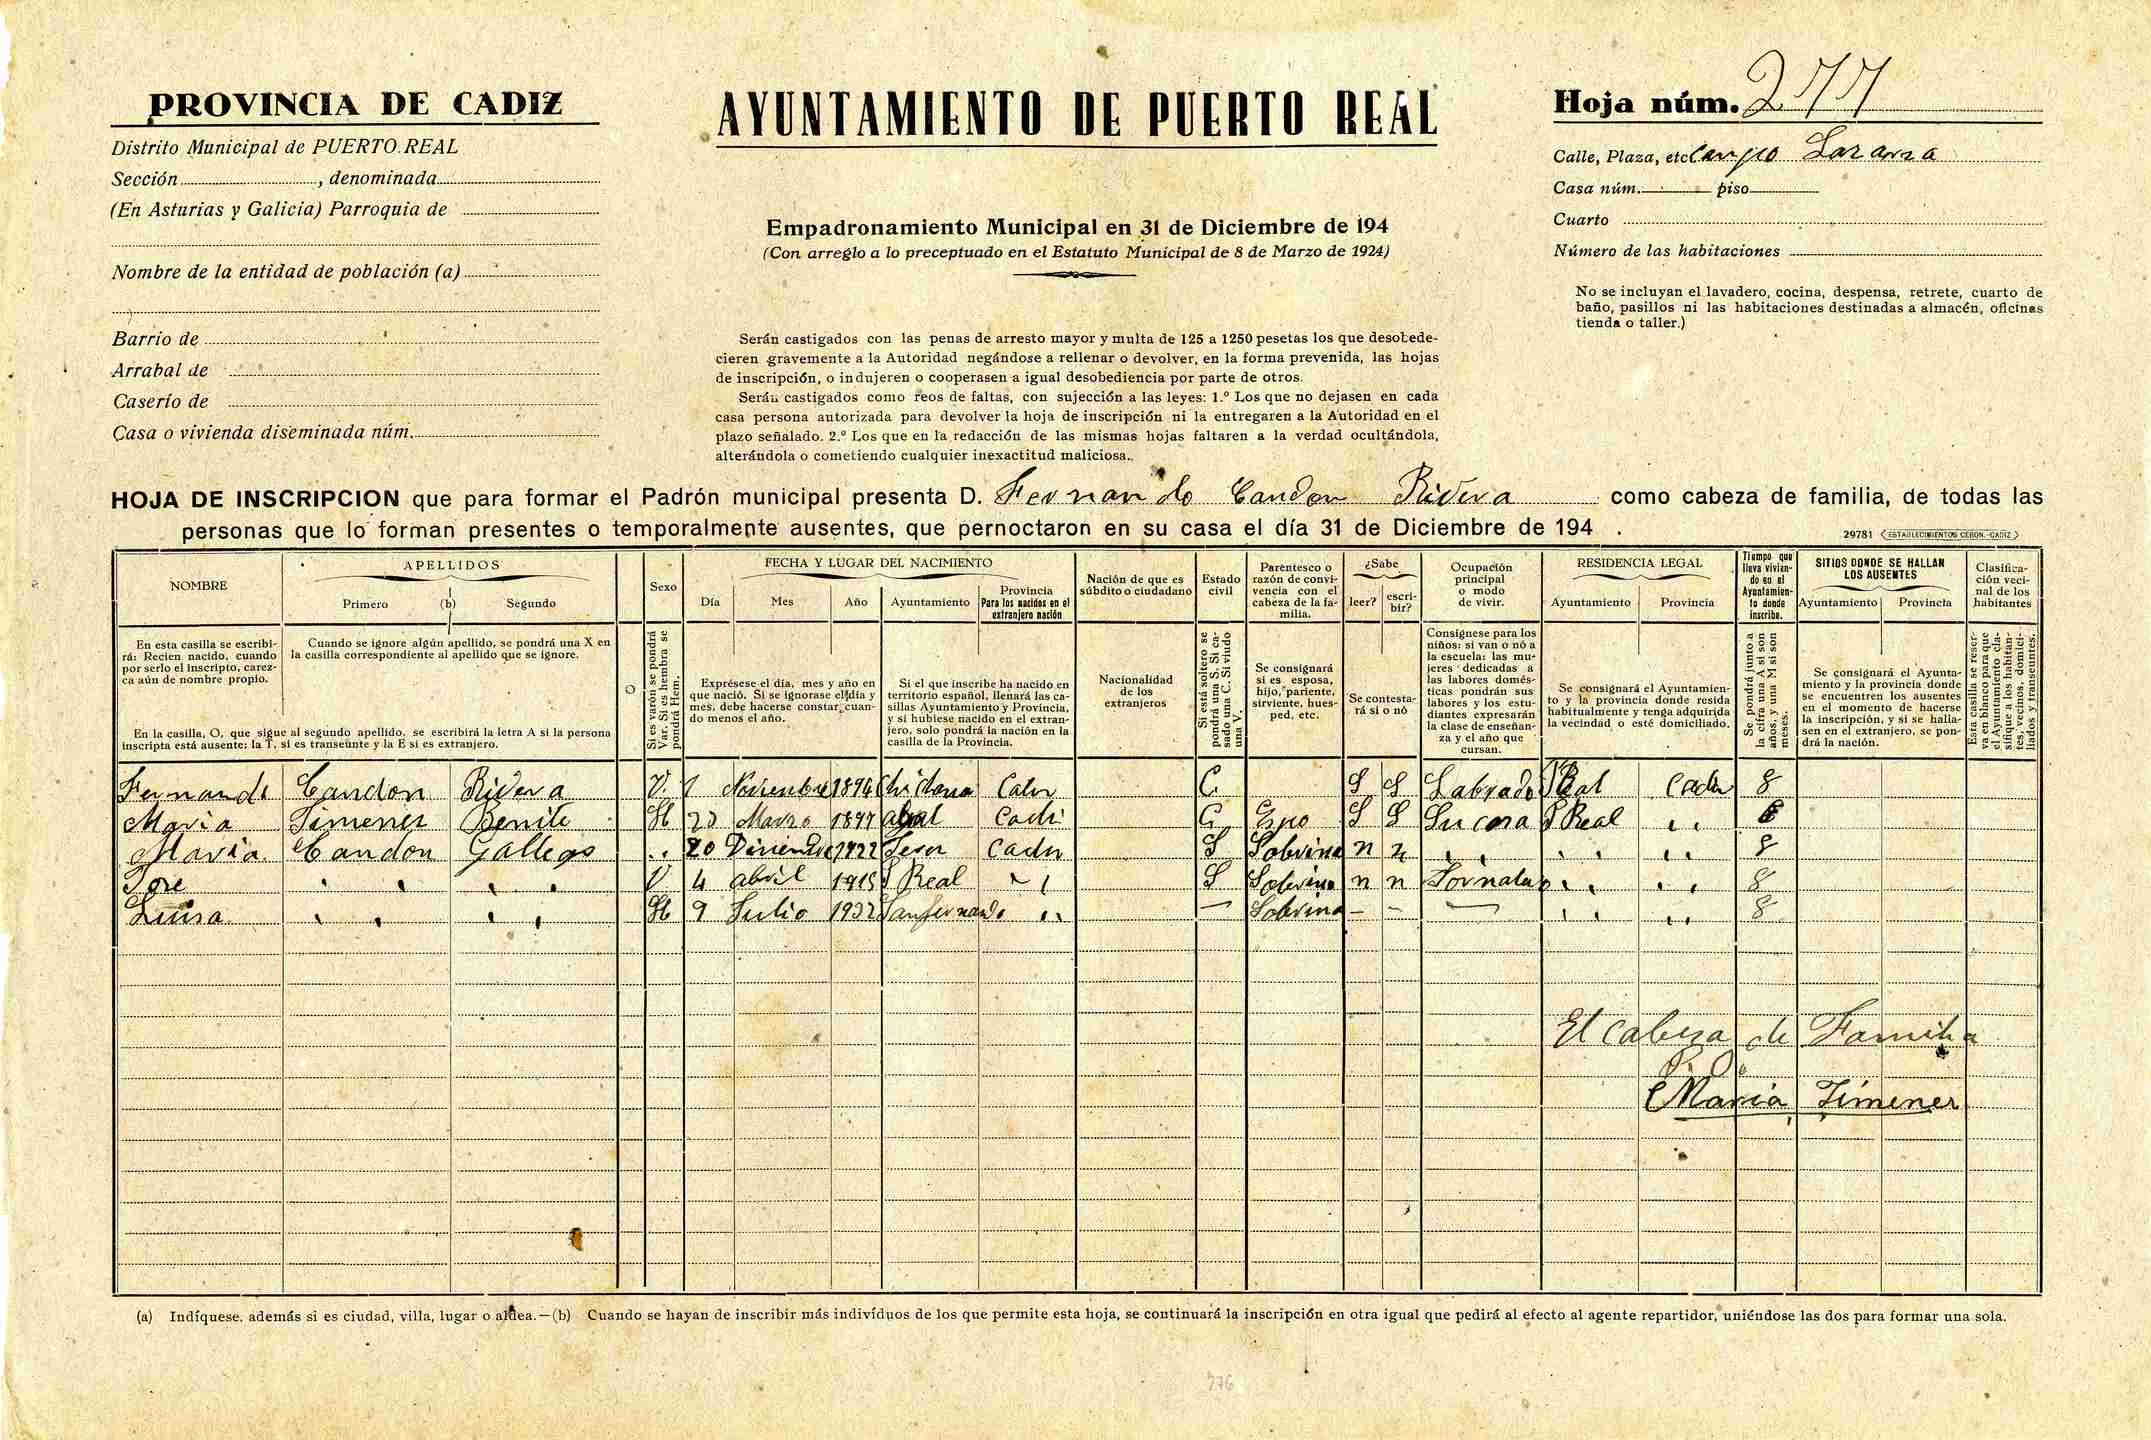 PROVINCIA DE CADIZ
Distrito Municipal de PUERTO REAL
Sección , denominada
(En Asturias y Galicia) Parroquia de
Nombre de la entidad de población (a)
Barrio de
Arrabal de
Caserío de
Casa o vivienda diseminada núm.
AYUNTAMIENTO DE PUERTO REAL
Empadronamiento Municipal en 31 de Diciembre de 194
(Con arreglo a lo preceptuado en el Estatuto Municipal de 8 de Marzo de 1924)
Serán castigados con las penas de arresto mayor y multa de 125 a 1250 pesetas los que desobede-
cieren gravemente a la Autoridad negándose a rellenar o devolver, en la forma prevenida, las hojas
de inscripción, o indujeren o cooperasen a igual desobediencia por parte de otros.
Serán castigados como reos de faltas, con sujección a las leyes: 1.º Los que no dejasen en cada
casa persona autorizada para devolver la hoja de inscripción ni la entregaren a la Autoridad en el
plazo señalado. 2.º Los que en la redacción de las mismas hojas faltaren a la verdad ocultándola,
alterándola o cometiendo cualquier inexactitud maliciosa.
Hoja núm. 277
Calle, Plaza, etc Campo
Casa núm. piso
Cuarto
Número de las habitaciones
No se incluyan el lavadero, cocina, despensa, retrete, cuarto de
baño, pasillos ni las habitaciones destinadas a almacén, oficinas
tienda o taller.)
HOJA DE INSCRIPCION que para formar el Padrón municipal presenta D. Fernando Candon Rivera como cabeza de familia, de todas las
personas que lo forman presentes o temporalmente ausentes, que pernoctaron en su casa el día 31 de Diciembre de 194 .
29781 ESTABLECIMIENTOS CERON.-CADIZ
NOMBRE
En esta casilla se escribi-
rá: Recien nacido, cuando
por serlo el inscripto, carez-
ca aún de nombre propio.
APELLIDOS
Primero (b) Segundo
Cuando se ignore algún apellido, se pondrá una X en
la casilla correspondiente al apellido que se ignore.
En la casilla, O, que sigue al segundo apellido, se escribirá la letra A si la persona
inscripta está ausente: la T, si es transeúnte y la E si es extranjero.
O
Sexo
Si es varón se pondrá
Var. Si es hembra se
pondrá Hem.
FECHA Y LUGAR DEL NACIMIENTO
Día Mes Año Ayuntamiento
Provincia
Para los nacidos en el
extranjero nación
Exprésese el día, mes y año en
que nació. Si se ignorase el día y
mes, debe hacerse constar cuan-
do menos el año.
Si el que inscribe ha nacido en
territorio español, llenará las ca-
sillas Ayuntamiento y Provincia,
y si hubiese nacido en el extran-
jero, solo pondrá la nación en la
casilla de la Provincia.
Nación de que es
súbdito o ciudadano
Nacionalidad
de los
extranjeros
Estado
civil
Si está soltero se
pondrá una S. Si ca-
sado una C. Si viudo
una V.
Parentesco o
razón de convi-
vencia con el
cabeza de la fa-
milia.
Se consignará
si es esposa,
hijo, pariente,
sirviente, hues-
ped, etc.
¿Sabe
leer? escri-
bir?
Se contesta-
rá si o nó
Ocupación
principal
o modo
de vivir.
Consígnese para los
niños: si van o nó a
la escuela: las mu-
jeres dedicadas a
las labores domés-
ticas pondrán sus
labores y los estu-
diantes expresarán
la clase de enseñan-
za y el año que
cursan.
RESIDENCIA LEGAL
Ayuntamiento Provincia
Se consignará el Ayuntamien-
to y la provincia donde resida
habitualmente y tenga adquirida
la vecindad o esté domiciliado.
Tiempo que
lleva vivien-
do en el
Ayuntamien-
to donde
inscribe.
Se pondrá junto a
la cifra una A si son
años, y una M si son
meses.
SITIOS DONDE SE HALLAN
LOS AUSENTES
Ayuntamiento Provincia
Se consignará el Ayunta-
miento y la provincia donde
se encuentren los ausentes
en el momento de hacerse
la inscripción, y si se halla-
sen en el extranjero, se pon-
drá la nación.
Clasifica-
ción veci-
nal de los
habitantes
Esta casilla se reser-
va en blanco para que
el Ayuntamiento cla-
sifique a los habitan-
tes, vecinos, domici-
liados y transeuntes.
Fernando Candon Rivera V. 1 Noviembre 1896 Chiclana Cadiz C S S Labrador P Real Cadiz 8
Maria Jimenez Benite H 23 Marzo 1897 Cadi C Espo S S Su casa P Real " 8
Maria Candon Gallego " 20 Diciembre 1922 Jerez Cadiz S Sobrina n n " " " " " 8
Jose " " " " V 4 abril 1915 P Real " S Sobrino n n Jornalero " " " 8
Luisa " " " " H 9 Julio 1932 San fernando " — Sobrina - - — " " " 8
El Cabeza de Familia
P. O.
Maria Jimenez
(a) Indíquese, además si es ciudad, villa, lugar o aldea.—(b) Cuando se hayan de inscribir más indivíduos de los que permite esta hoja, se continuará la inscripción en otra igual que pedirá al efecto al agente repartidor, uniéndose las dos para formar una sola.
276